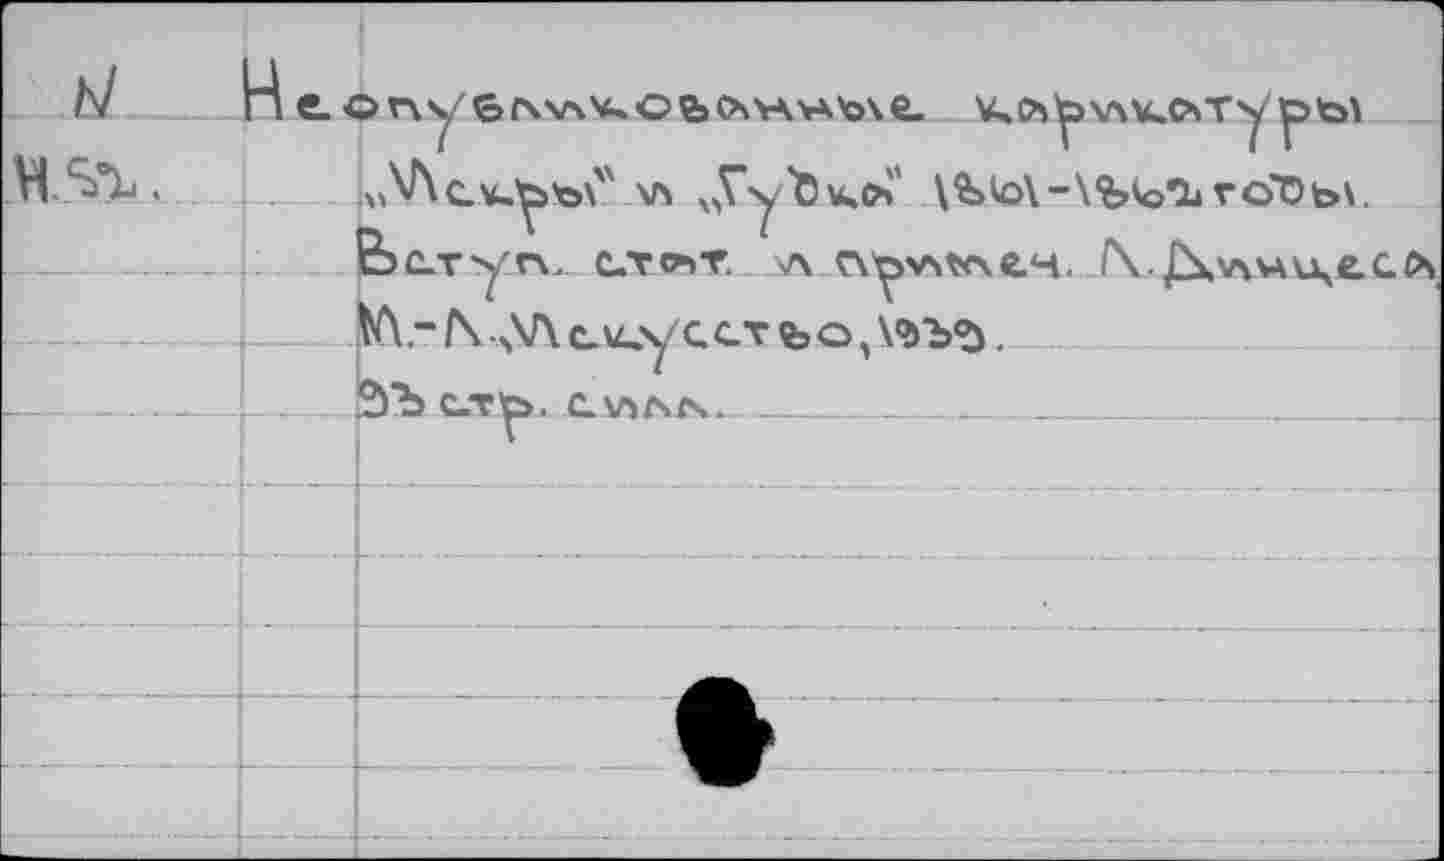 N Неопубликованные карикатуры
„Искры" и „Гудка" 1861-1862 годы.
Вступ. стат. и примеч. Л. Динцеса
М.-Л., Искусство, 1939.
93 стр. силл.